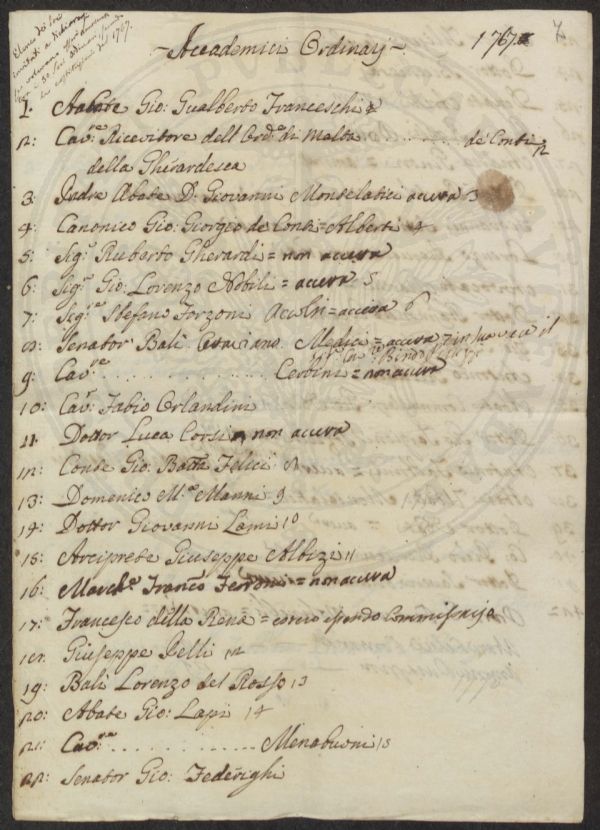 Elenco dei Soci
invitati a dichiarare
1767.
- Accademici Ordinarj - 1767
7
1. Abate Gio: Gualberto Franceschi
2: Cav.e Ricevitore dell'Ord.e di Malta . . . . . . . de Conti
della Gherardesca 2
3. Padre Abate D. Giovanni Montelatici accusa 3
4: Canonico Gio: Giorgio de Conti = Alberti 4
5: Sig.e Ruberto Gherardi = non accusa
6: Sig.e Gio: Lorenzo Nobili = accusa 5
7: Sig.re Stefano Forzoni Accolti = accusa 6
8: Senator Balì Graziano Medici = accusa, in sua vece il
Sr. Cav.re Bindo
9: Cav.re . . . . . . . . . . . . . . . . Cerbini = non accusa
10: Cav: Fabio Orlandini
11. Dottor Luca Corsi non accusa
12: Conte Gio: Batta Felici 8
13: Domenico M.a Manni 9
14: Dottor Giovanni Lami 10
15: Arciprete Giuseppe Albizi 11
16: March.e Franc.o Ferroni = non accusa
17: Francesco della Rena =
18: Giuseppe Pelli 12
19: Balì Lorenzo del Rosso 13
20: Abate Gio: Lapi 14
21: Cav.re . . . . . . . . . . . . . . Menabuoni 15
22: Senator Gio: Federighi